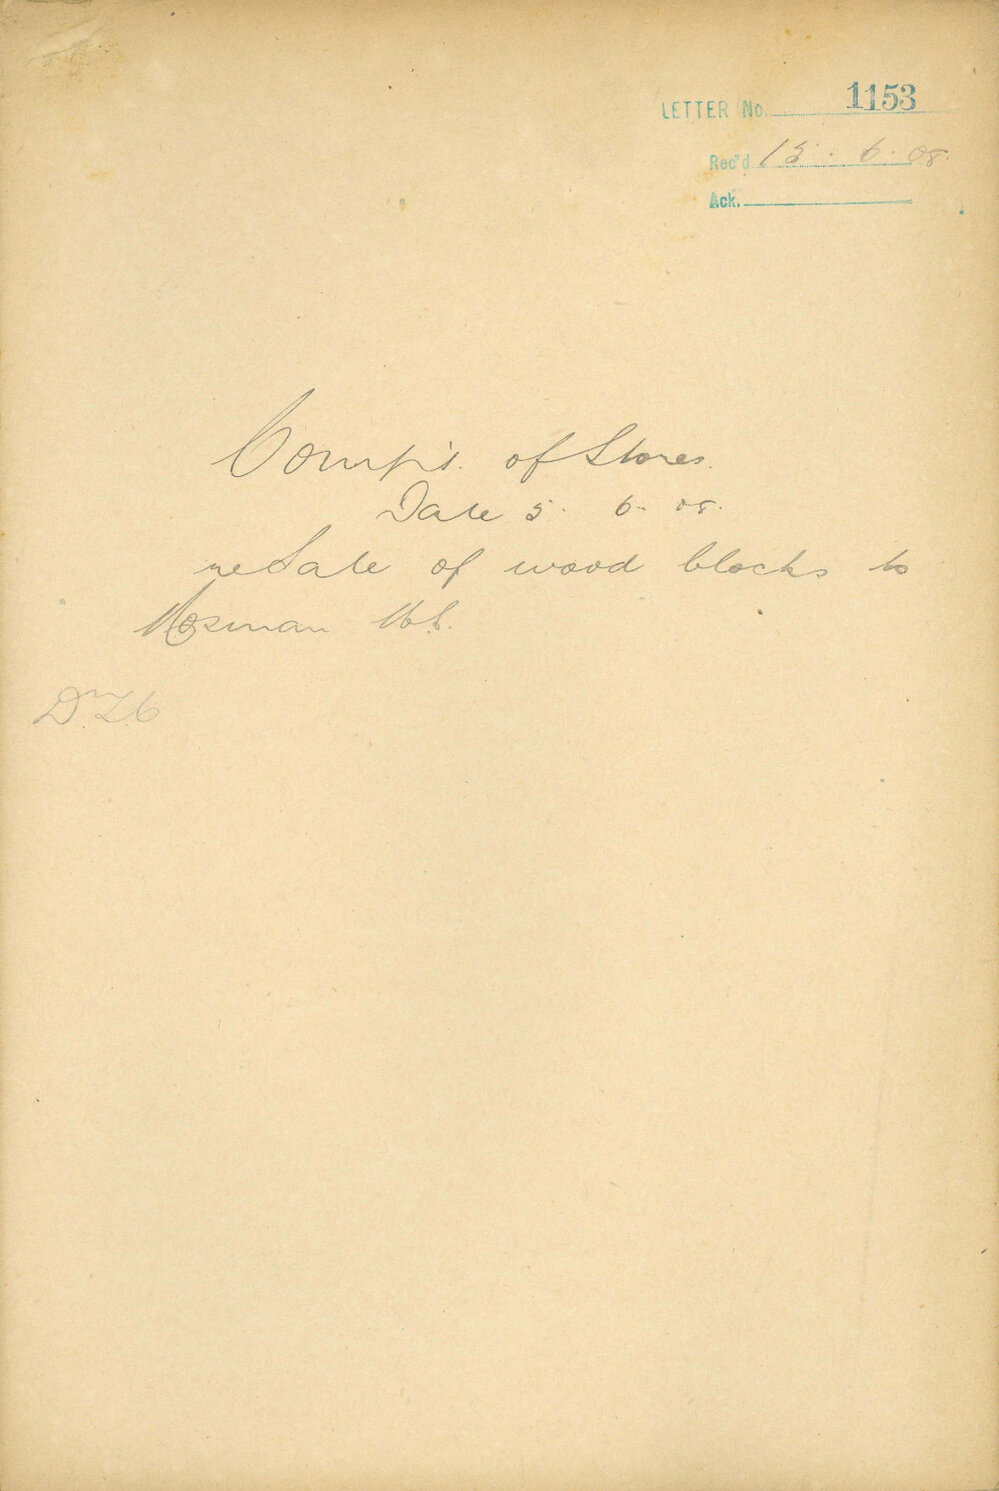 LETTER No. 1153
Rec'd 15. 6. 08.
Ack.
Comp't. of Stores.
Date 5. 6. 08.
re Sale of wood blocks to
Mosman M.C.